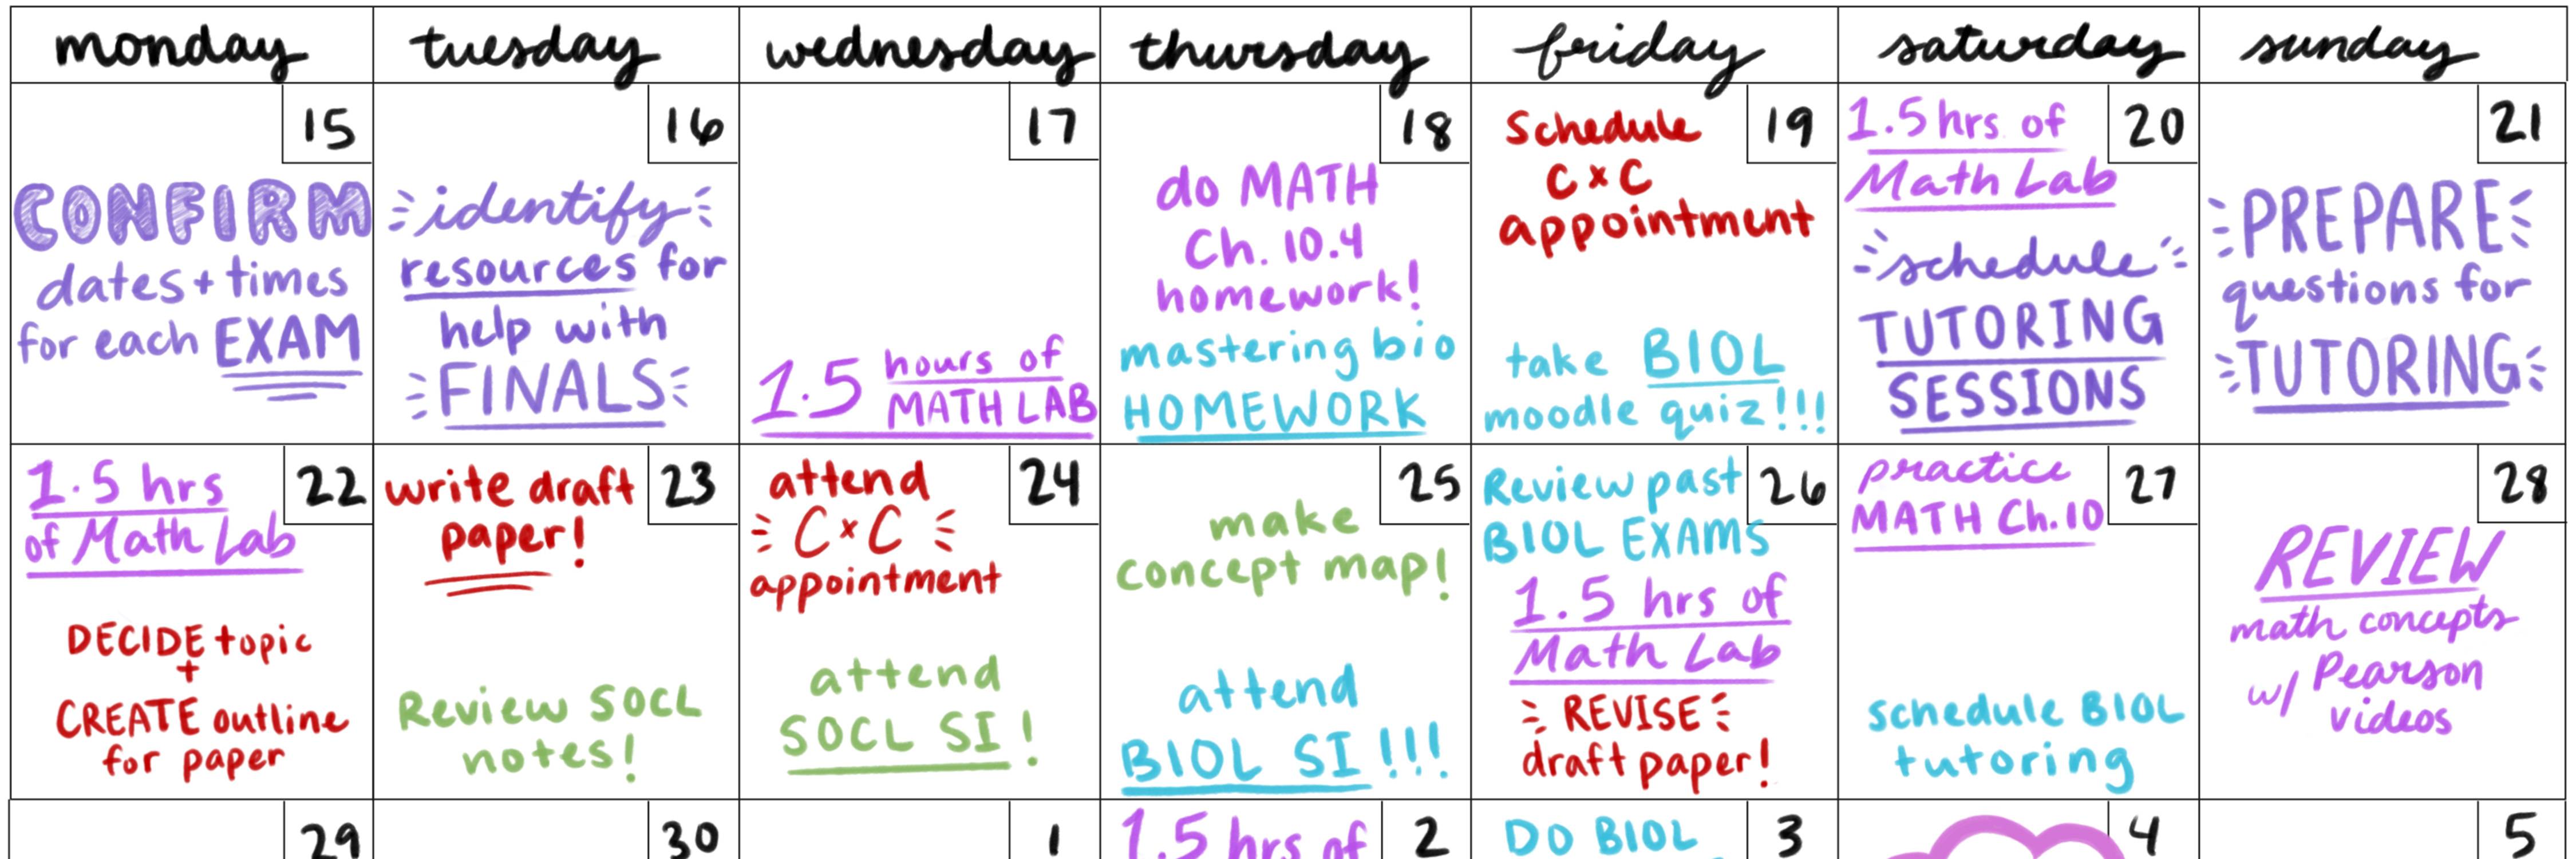 monday tuesday wednesday thursday friday saturday sunday
15
CONFIRM
dates + times
for each EXAM
16
identify
resources for
help with
FINALS
17
1.5 hours of
MATH LAB
18
do MATH
Ch. 10.4
homework!
mastering bio
HOMEWORK
19
Schedule
CxC
appointment
take BIOL
moodle quiz!!!
20
1.5 hrs of
Math Lab
schedule
TUTORING
SESSIONS
21
PREPARE
questions for
TUTORING
22
1.5 hrs
of Math Lab
DECIDE topic
+
CREATE outline
for paper
23
write draft
paper!
Review SOCL
notes!
24
attend
CxC
appointment
attend
SOCL SI!
25
make
concept map!
attend
BIOL SI!!!
26
Review past
BIOL EXAMS
1.5 hrs of
Math Lab
REVISE
draft paper!
27
practice
MATH Ch.10
schedule BIOL
tutoring
28
REVIEW
math concepts
w/ Pearson
videos
29
30
1
2
1.5 hrs of
3
DO BIOL
4
5